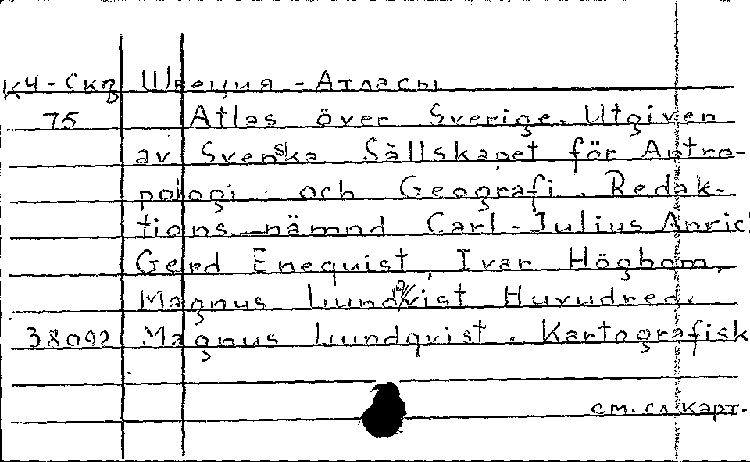 КЧ-Скд Швеция - Атласы
75 Atlas över Sverige. Utgiven
av Svenska Sällskapet för Antro-
pologi och Geografi. Redak-
tions-nämnd Carl-Julius Anric
Gerd Enequist, Ivar Högbom,
Magnus Lundqvist Huvudred.
38092 Magnus Lundqvist. Kartografisk
см. сл. карт.